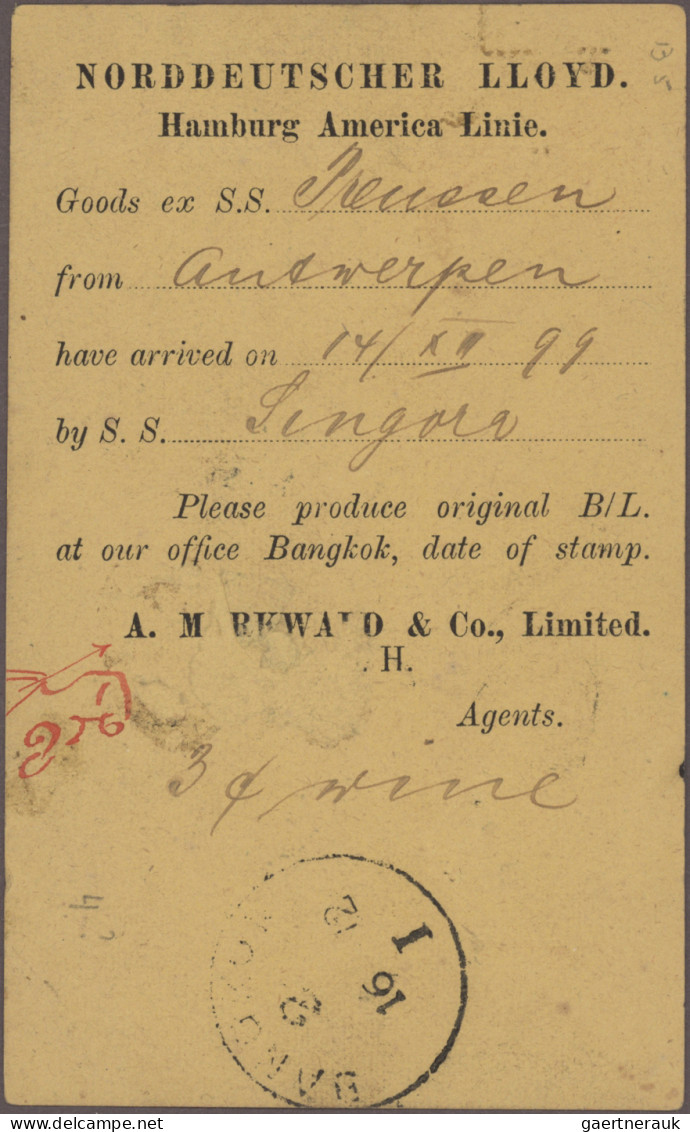 NORDDEUTSCHER LLOYD.
Hamburg America Linie.
Goods ex S.S. Preussen
from Antwerpen
have arrived on 14/XII 99
by S. S. Singora
Please produce original B/L.
at our office Bangkok, date of stamp.
A. M RKWALD & Co., Limited.
. H.
Agents.
3 ¢ wine
BANGKOK
I
16
12
gaertnerauk